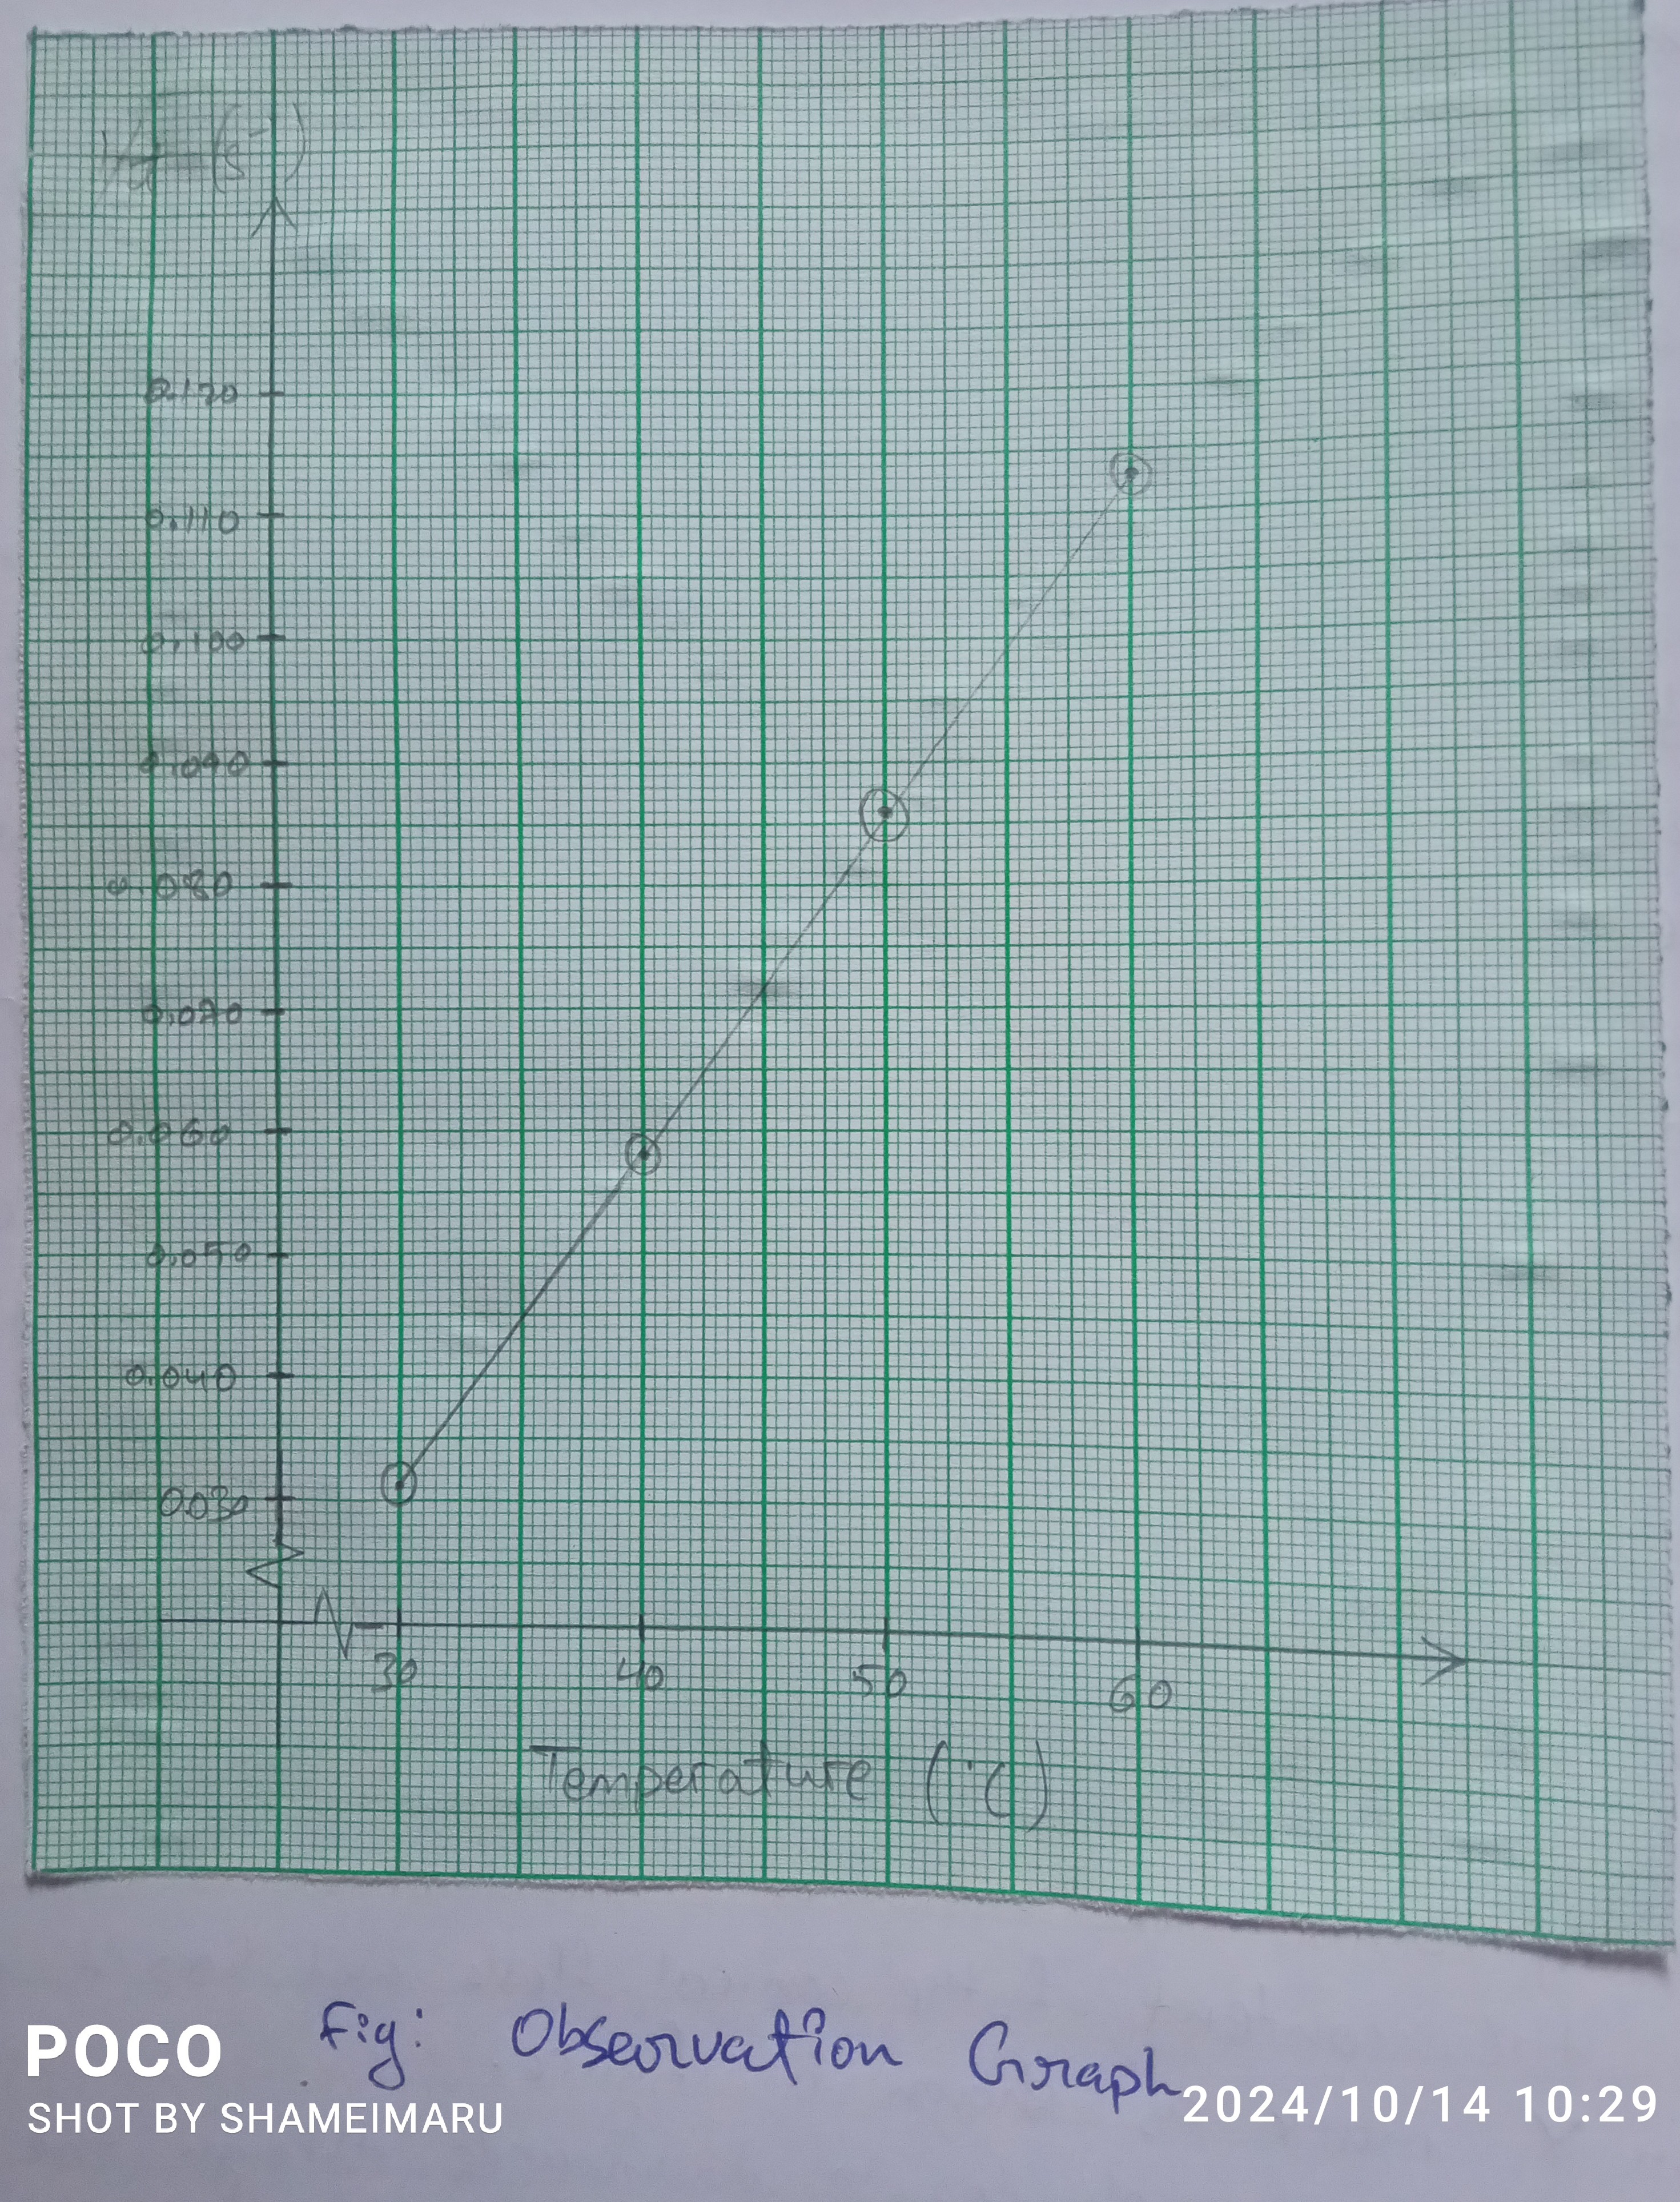 1/t (s⁻)
0.120
0.110
0.100
0.090
0.080
0.070
0.060
0.050
0.040
0.030
30 40 50 60
Temperature (°C)
Fig: Observation Graph
POCO
SHOT BY SHAMEIMARU
2024/10/14 10:29